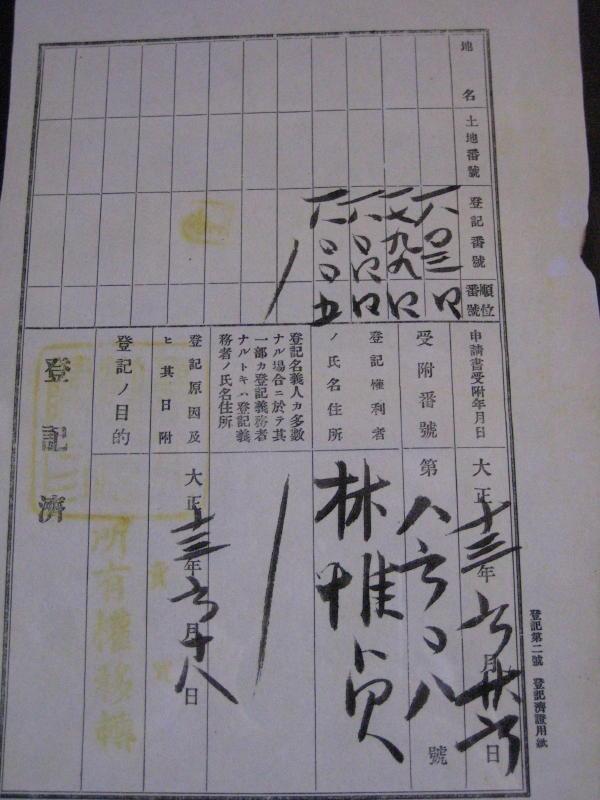 地名
土地番號
登記番號
順位番號
一八〇三
一七九九
申請書受附年月日
大正十三年六月廿六日
受附番號
第 號
登記權利者
ノ氏名住所
林惟貞
登記名義人カ多數
ナル場合ニ於テ其
一部カ登記義務者
ナルトキハ登記義
務者ノ氏名住所
登記原因及
ヒ其日附
大正十三年六月十八日
賣買
登記ノ目的
所有權移轉
登記濟
登記第二號 登記濟證用紙